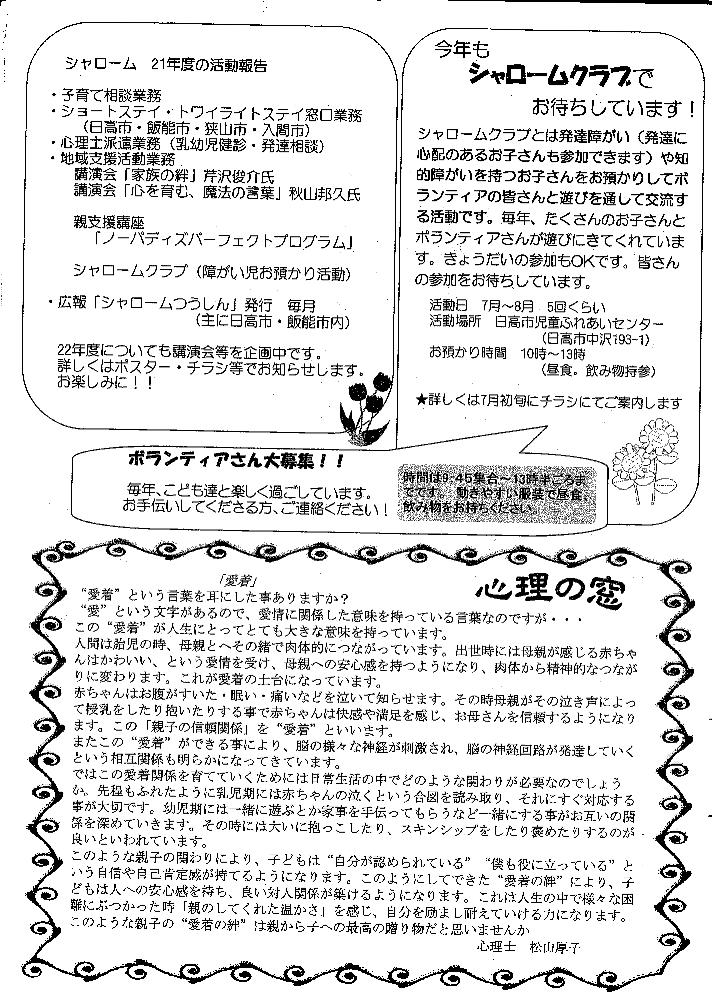 シャローム　21年度の活動報告
・子育て相談業務
・ショートステイ・トワイライトステイ窓口業務
（日高市・飯能市・狭山市・入間市）
・心理士派遣業務（乳幼児健診・発達相談）
・地域支援活動業務
講演会「家族の絆」芹沢俊介氏
講演会「心を育む、魔法の言葉」秋山邦久氏
親支援講座
「ノーバディズパーフェクトプログラム」
シャロームクラブ（障がい児お預かり活動）
・広報「シャロームつうしん」発行　毎月
（主に日高市・飯能市内）
22年度についても講演会等を企画中です。
詳しくはポスター・チラシ等でお知らせします。
お楽しみに！！
今年も
シャロームクラブで
お待ちしています！
シャロームクラブとは発達障がい（発達に
心配のあるお子さんも参加できます）や知
的障がいを持つお子さんをお預かりしてボ
ランティアの皆さんと遊びを通して交流す
る活動です。毎年、たくさんのお子さんと
ボランティアさんが遊びにきてくれていま
す。きょうだいの参加もOKです。皆さん
の参加をお待ちしています。
活動日　7月～8月　5回くらい
活動場所　日高市児童ふれあいセンター
（日高市中沢193-1）
お預かり時間　10時～13時
（昼食。飲み物持参）
★詳しくは7月初旬にチラシにてご案内します
ボランティアさん大募集！！
毎年、こども達と楽しく過ごしています。
お手伝いしてくださる方、ご連絡ください！
時間は9：45集合～13時半ごろま
でです。動きやすい服装で昼食、
飲み物をお持ちください。
心理の窓
「愛着」
“愛着”という言葉を耳にした事ありますか？
“愛”という文字があるので、愛情に関係した意味を持っている言葉なのですが・・・
この“愛着”が人生にとってとても大きな意味を持っています。
人間は胎児の時、母親とへその緒で肉体的につながっています。出世時には母親が感じる赤ちゃ
んはかわいい、という愛情を受け、母親への安心感を持つようになり、肉体から精神的なつなが
りに変わります。これが愛着の土台になっています。
赤ちゃんはお腹がすいた・眠い・痛いなどを泣いて知らせます。その時母親がその泣き声によっ
て授乳をしたり抱いたりする事で赤ちゃんは快感や満足を感じ、お母さんを信頼するようになり
ます。この「親子の信頼関係」を“愛着”といいます。
またこの“愛着”ができる事により、脳の様々な神経が刺激され、脳の神経回路が発達していく
という相互関係も明らかになってきています。
ではこの愛着関係を育てていくためには日常生活の中でどのような関わりが必要なのでしょう
か。先程もふれたように乳児期には赤ちゃんの泣くという合図を読み取り、それにすぐ対応する
事が大切です。幼児期には一緒に遊ぶとか家事を手伝ってもらうなど一緒にする事がお互いの関
係を深めていきます。その時には大いに抱っこしたり、スキンシップをしたり褒めたりするのが
良いといわれています。
このような親子の関わりにより、子どもは“自分が認められている”“僕も役に立っている”と
いう自信や自己肯定感が持てるようになります。このようにしてできた“愛着の絆”により、子
どもは人への安心感を持ち、良い対人関係が築けるようになります。これは人生の中で様々な困
難にぶつかった時「親のしてくれた温かさ」を感じ、自分を励まし耐えていける力になります。
このような親子の“愛着の絆”は親から子への最高の贈り物だと思いませんか
心理士　松山厚子